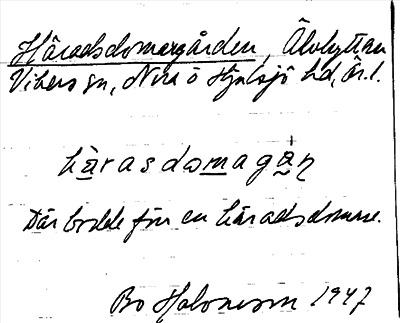 Häradsdomargården, Älvhyttan
Vikers sn, Nora o Hjulsjö hd, Ör. l.
härasdomagån
Där bodde förr en häradsdomare.
Bo 1947